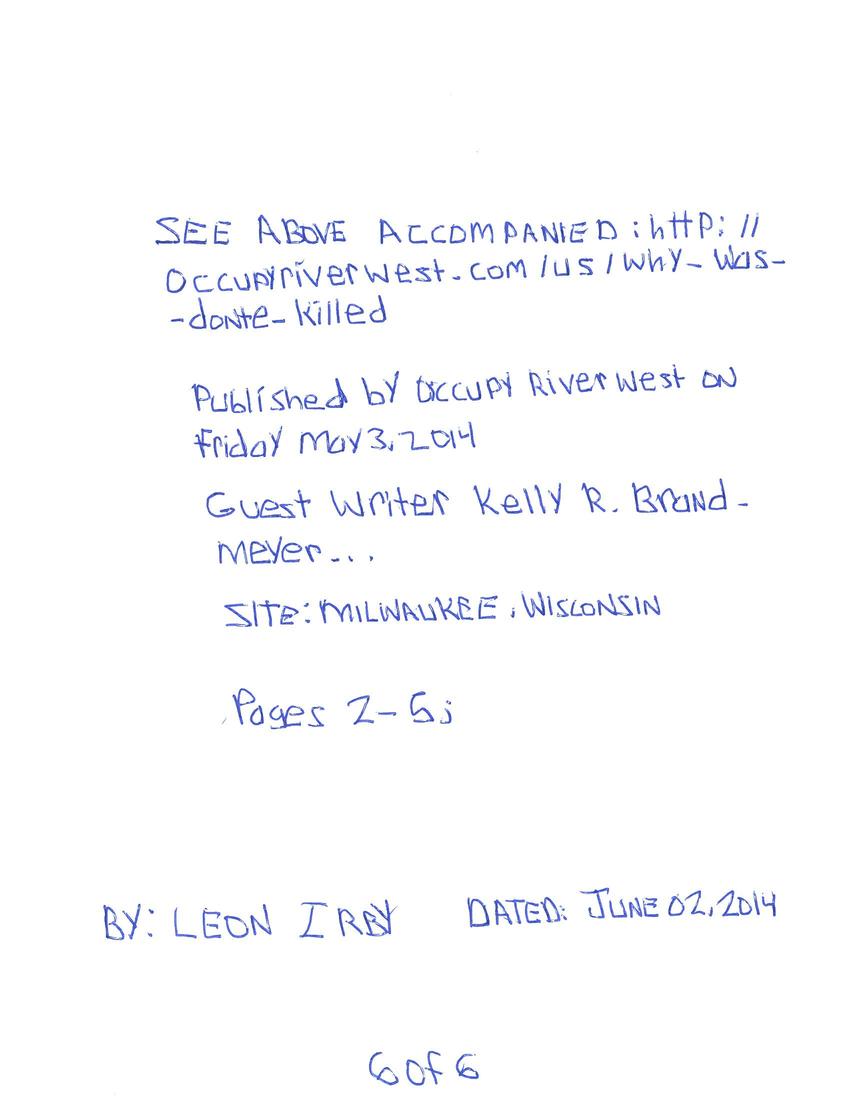 SEE ABOVE ACCOMPANIED : http: //
Occupyriverwest.com/us/why-was-
-donte-killed
Published by Occupy Riverwest on
Friday May 3, 2014
Guest Writer Kelly R. Brand-
meyer...
SITE: MILWAUKEE, WISCONSIN
Pages 2-5;
BY: LEON IRBY DATED: JUNE 02, 2014
6 of 6